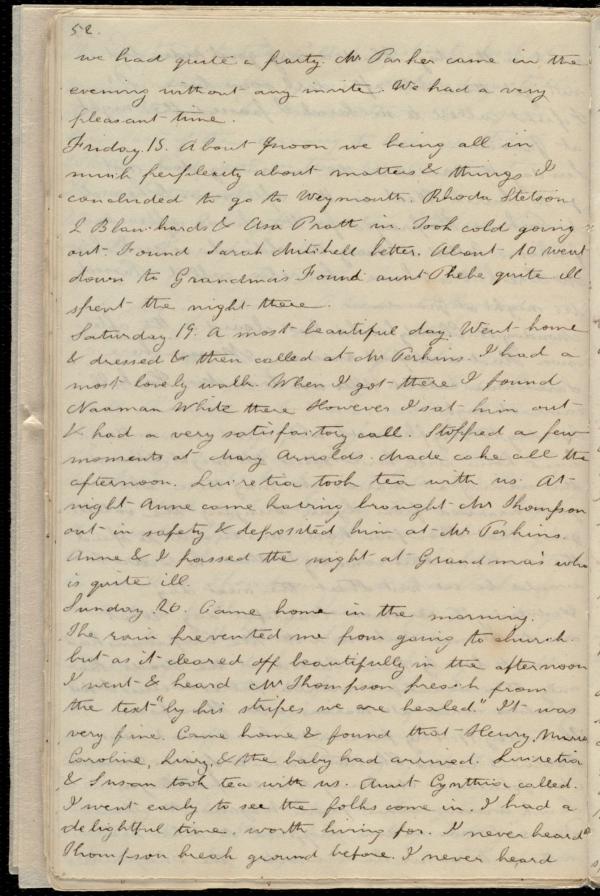 52.
we had quite a party. Mr Parker came in the
evening without any invite. We had a very
pleasant time.
Friday. 18. About noon we being all in
much perplexity about matters & things I
concluded to go to Weymouth. Rhoda Stetson
I Blanchards & Asa Pratt in. Took cold going
out. Found Sarah Mitchell better. About 10 went
down to Grandma's Found aunt Phebe quite ill
spent the night there.
Saturday. 19. A most beautiful day. Went home
& dressed & then called at Mr Perkins. I had a
most lovely walk. When I got there I found
Naaman White there However I sat him out
& had a very satisfactory call. Stopped a few
moments at Mary Arnolds. Made cake all the
afternoon. Lucretia took tea with us. At
night Anne came having brought Mr Thompson
out in safety & deposited him at Mr Perkins.
Anne & I passed the night at Grandma's who
is quite ill.
Sunday. 20. Came home in the morning.
The rain prevented me from going to church.
but as it cleared off beautifully in the afternoon
I went & heard Mr Thompson preach from
the text "by his stripes we are healed." It was
very fine. Came home & found that Henry, Maria
Caroline, Lizzy, & the baby had arrived. Lucretia
& Susan took tea with us. Aunt Cynthia called.
I went early to see the folks come in. I had a
delightful time. worth living for. I never heard
Thompson break ground before. I never heard